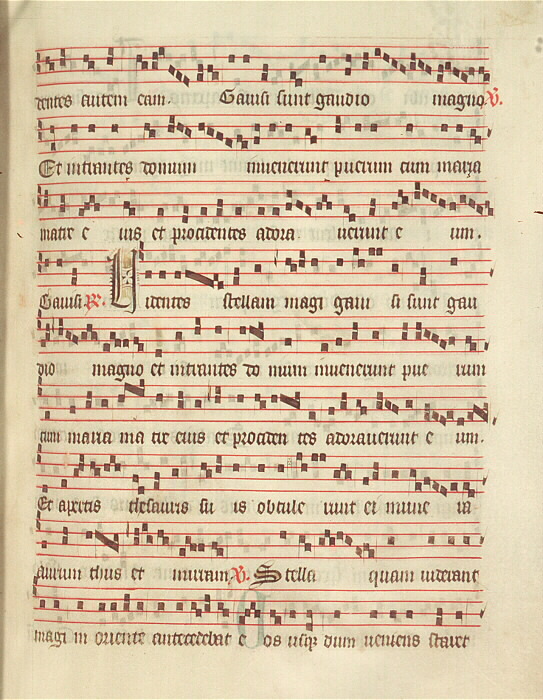 dentes autem eam. Gauisi sunt gaudio magno V.
Et intrantes domum inuenerunt puerum cum maria
matre e ius et procidentes adora uerunt e um.
Gauisi R. Uidentes stellam magi gaui si sunt gau
dio magno et intrantes do mum inuenerunt pue rum
cum maria ma tre eius et prociden tes adorauerunt e um.
Et apertis thesauris su is obtule runt ei mune ra
aurum thus et mirram V. Stella quam uiderant
magi in oriente antecedebat e os usque dum ueniens staret